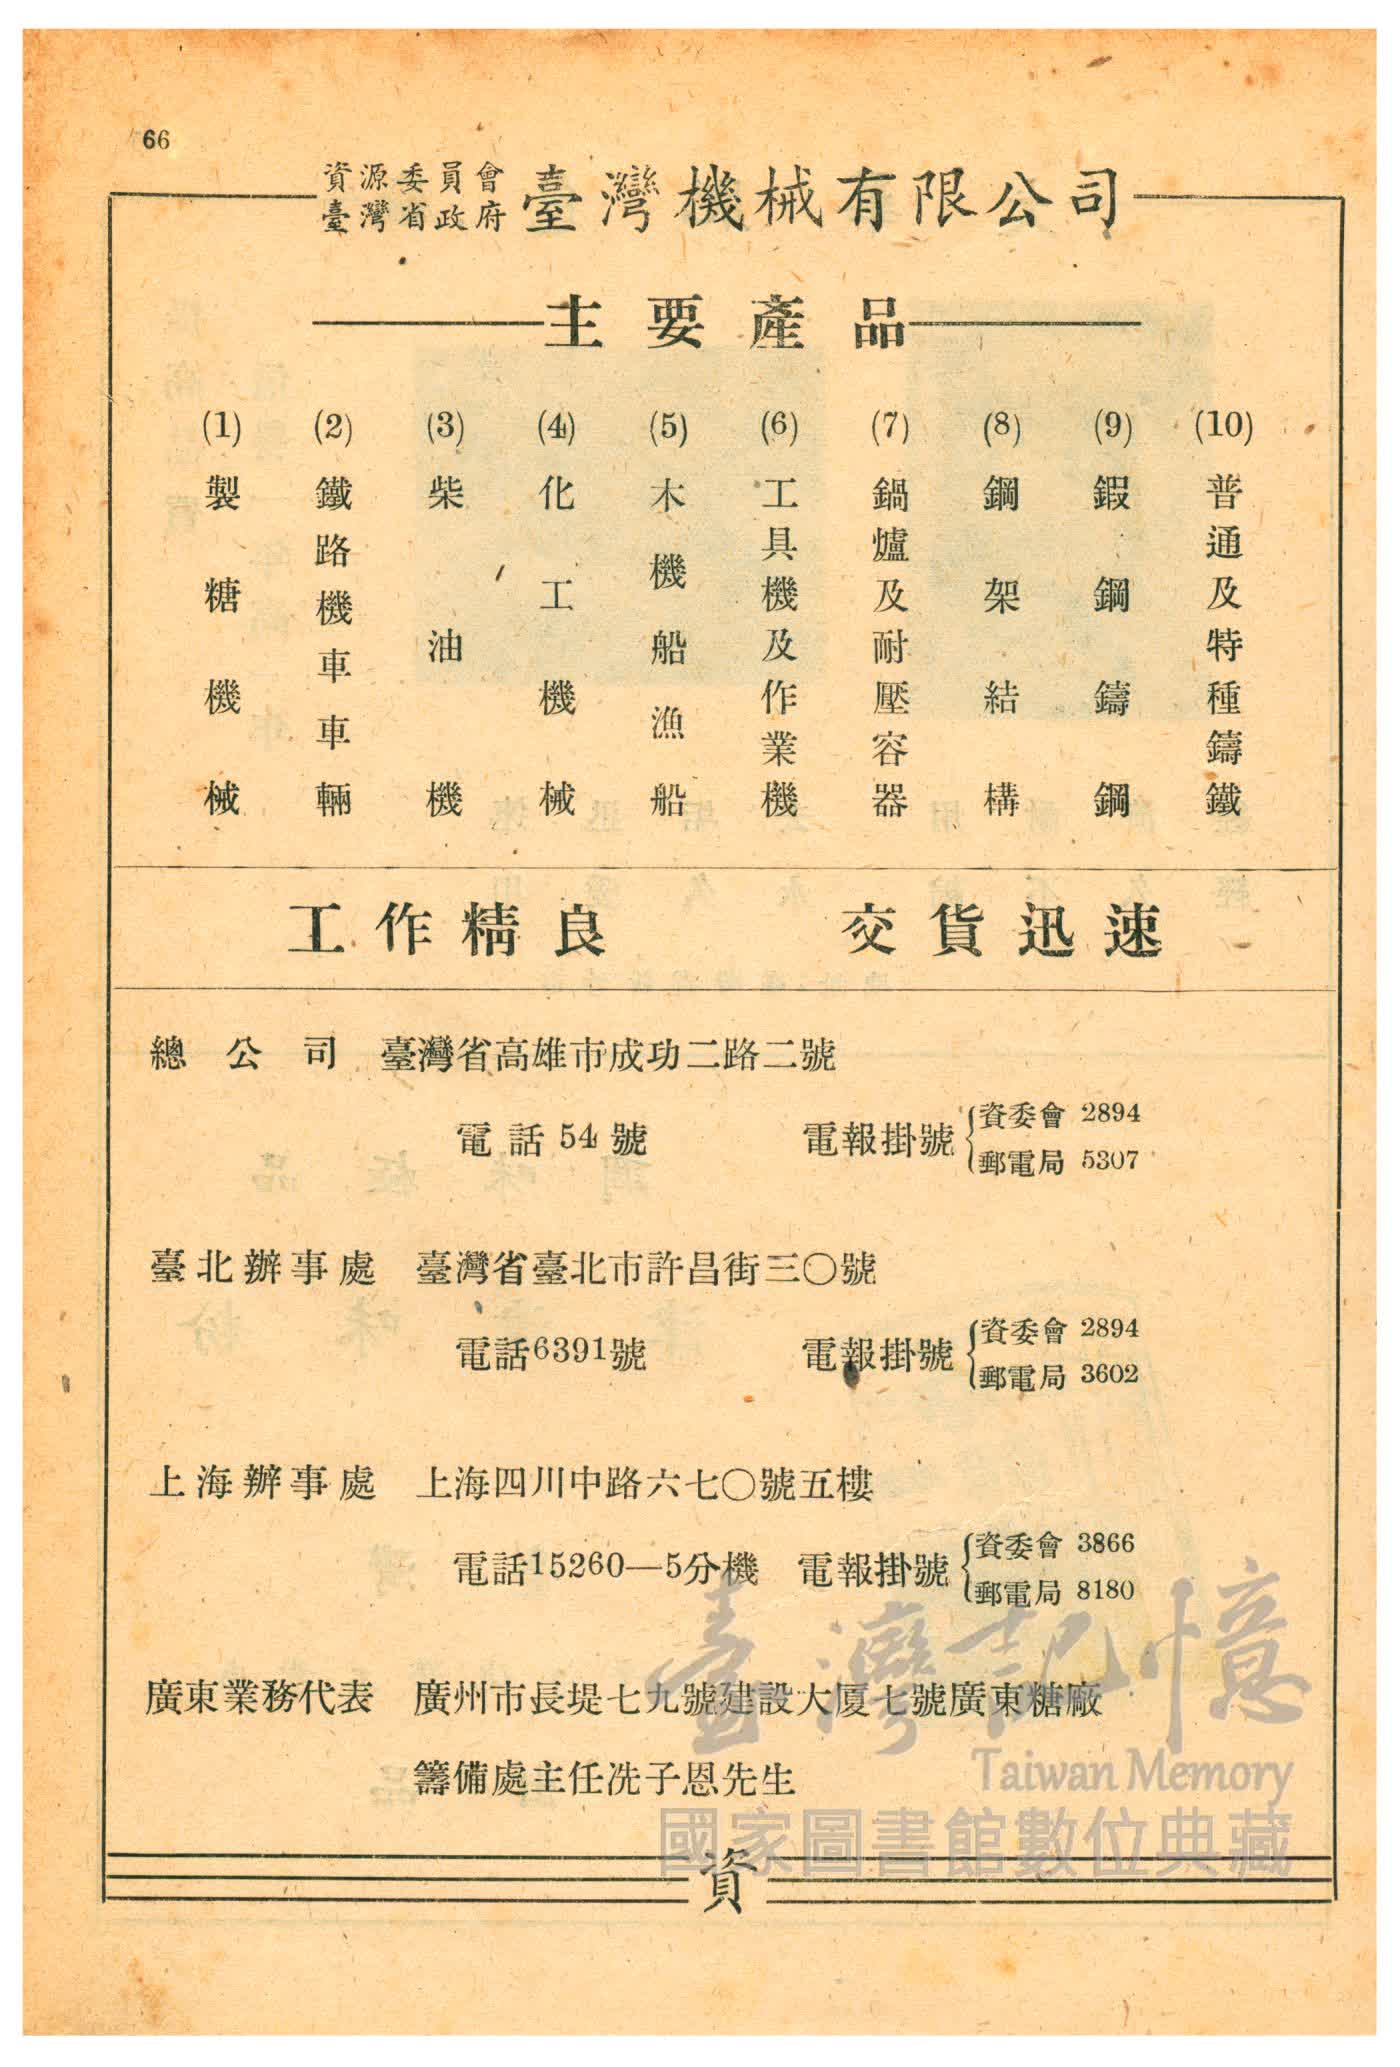 66
資源委員會
臺灣省政府
臺灣機械有限公司
主要產品
(1) 製糖機械
(2) 鐵路機車車輛
(3) 柴油機
(4) 化工機械
(5) 木機船漁船
(6) 工具機及作業機
(7) 鍋爐及耐壓容器
(8) 鋼架結構
(9) 鍜鋼鑄鋼
(10) 普通及特種鑄鐵
工作精良 交貨迅速
總公司 臺灣省高雄市成功二路二號
電話 54 號 電報掛號 資委會 2894
郵電局 5307
臺北辦事處 臺灣省臺北市許昌街三〇號
電話6391號 電報掛號 資委會 2894
郵電局 3602
上海辦事處 上海四川中路六七〇號五樓
電話15260—5分機 電報掛號 資委會 3866
郵電局 8180
廣東業務代表 廣州市長堤七九號建設大厦七號廣東糖廠
籌備處主任冼子恩先生
資
臺灣記憶
Taiwan Memory
國家圖書館數位典藏